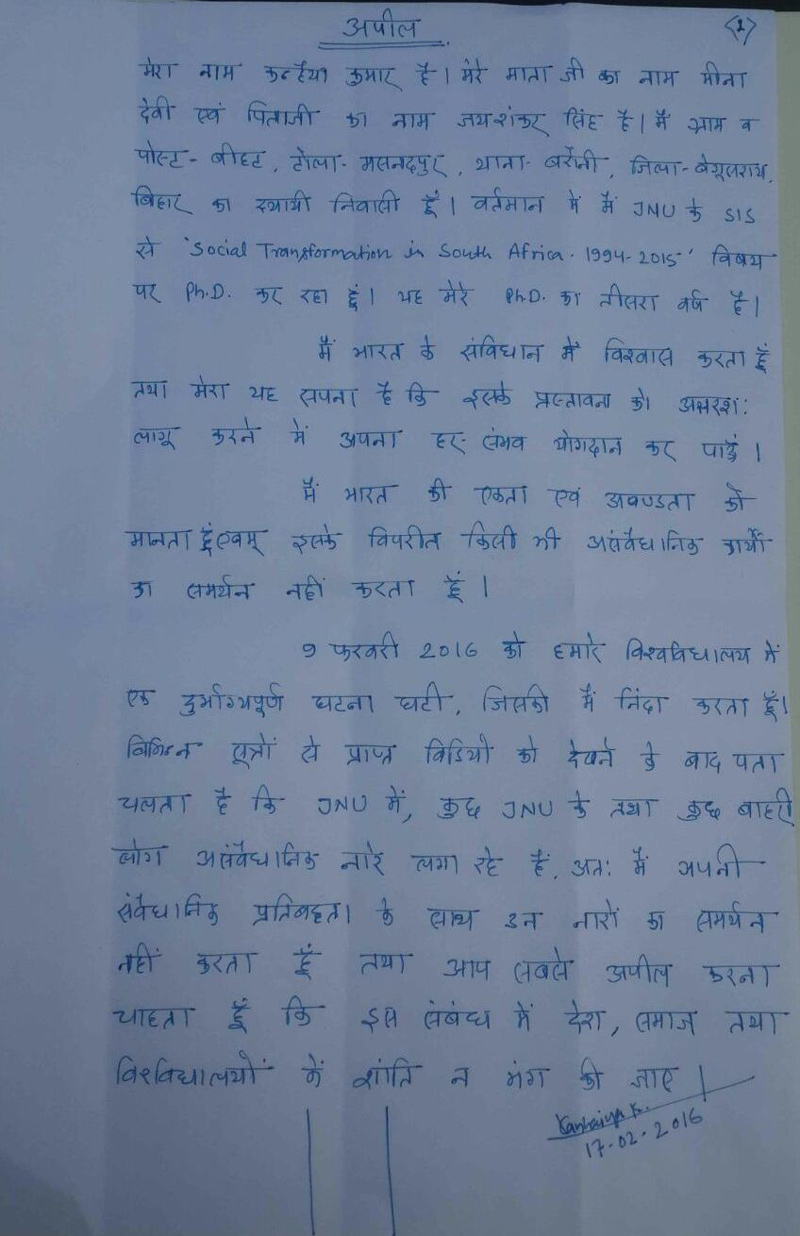 अपील
<1>
मेरा नाम कन्हैया कुमार है। मेरे माता जी का नाम मीना
देवी एवं पिताजी का नाम जयशंकर सिंह है। मैं ग्राम व
पोस्ट- बीहट, टोला- मसनदपुर, थाना- बरौनी, जिला- बेगूसराय,
बिहार का स्थायी निवासी हूँ। वर्तमान में मैं JNU के SIS
से 'Social Transformation in South Africa. 1994-2015' विषय
पर Ph.D. कर रहा हूँ। यह मेरे Ph.D. का तीसरा वर्ष है।
मैं भारत के संविधान में विश्वास करता हूँ
तथा मेरा यह सपना है कि इसके प्रस्तावना को अक्षरश:
लागू करने में अपना हर- संभव योगदान कर पाऊँ।
मैं भारत की एकता एवं अखण्डता को
मानता हूं एवम् इसके विपरीत किसी भी असंवैधानिक कार्यों
का समर्थन नहीं करता हूँ।
9 फरवरी 2016 को हमारे विश्वविद्यालय में
एक दुर्भाग्यपूर्ण घटना घटी, जिसकी मैं निंदा करता हूँ।
विभिन्न सूत्रों से प्राप्त विडियो को देखने के बाद पता
चलता है कि JNU में, कुछ JNU के तथा कुछ बाहरी
लोग असंवैधानिक नारे लगा रहे हैं, अत: मैं अपनी
संवैधानिक प्रतिबद्धता के साथ उन नारों का समर्थन
नहीं करता हूँ तथा आप सबसे अपील करना
चाहता हूँ कि इस संबंध में देश, समाज तथा
विश्वविद्यालयों में शांति न भंग की जाए।
Kanhaiya K.
17-02-2016